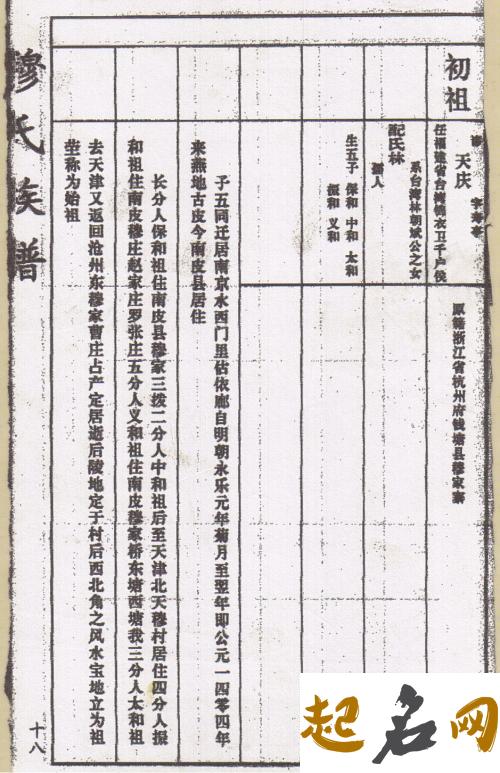 初祖
讳 天庆 字寿亭
原籍浙江省杭州府钱塘县穆家寨
任福建省台湾锦衣卫千户侯
配氏林
系台湾林朝斌公之女
孺人
生五子 保和 中和 太和
振和 义和
子五同迁居南京水西门里估依廊自明朝永乐元年菊月至翌年即公元一四零四年
来燕地古皮今南皮县居住
长分人保和祖住南皮县穆家三拨二分人中和祖后至天津北天穆村居住四分人振
和祖住南皮穆庄赵家庄罗张庄五分人义和祖住南皮穆家桥东塘西塘我三分人太和祖
去天津又返回沧州东穆家曹庄占产定居逝后陵地定于村后西北角之风水宝地立为祖
茔称为始祖
穆氏族谱
十八
起名网